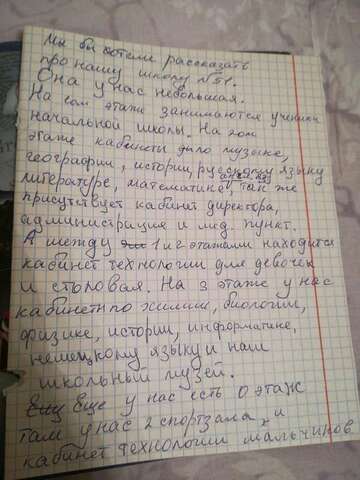 Мы бы хотели рассказать
про нашу школу №51.
Она у нас небольшая.
На 1ом этаже занимаются ученики
начальной школы. На 2ом
этаже кабинеты по музыке,
географии, истории, русскому языку
литературе, математике, так же
присутствует кабинет директора,
администрация и мед. пункт.
А между 1 и 2 этажами находится
кабинет технологии для девочек
и столовая. На 3 этаже у нас
кабинеты по химии, биологии,
физике, истории, информатике,
немецкому языку и наш
школьный музей.
Еще у нас есть 0 этаж
там у нас 2 спортзала и
кабинет технологии мальчиков